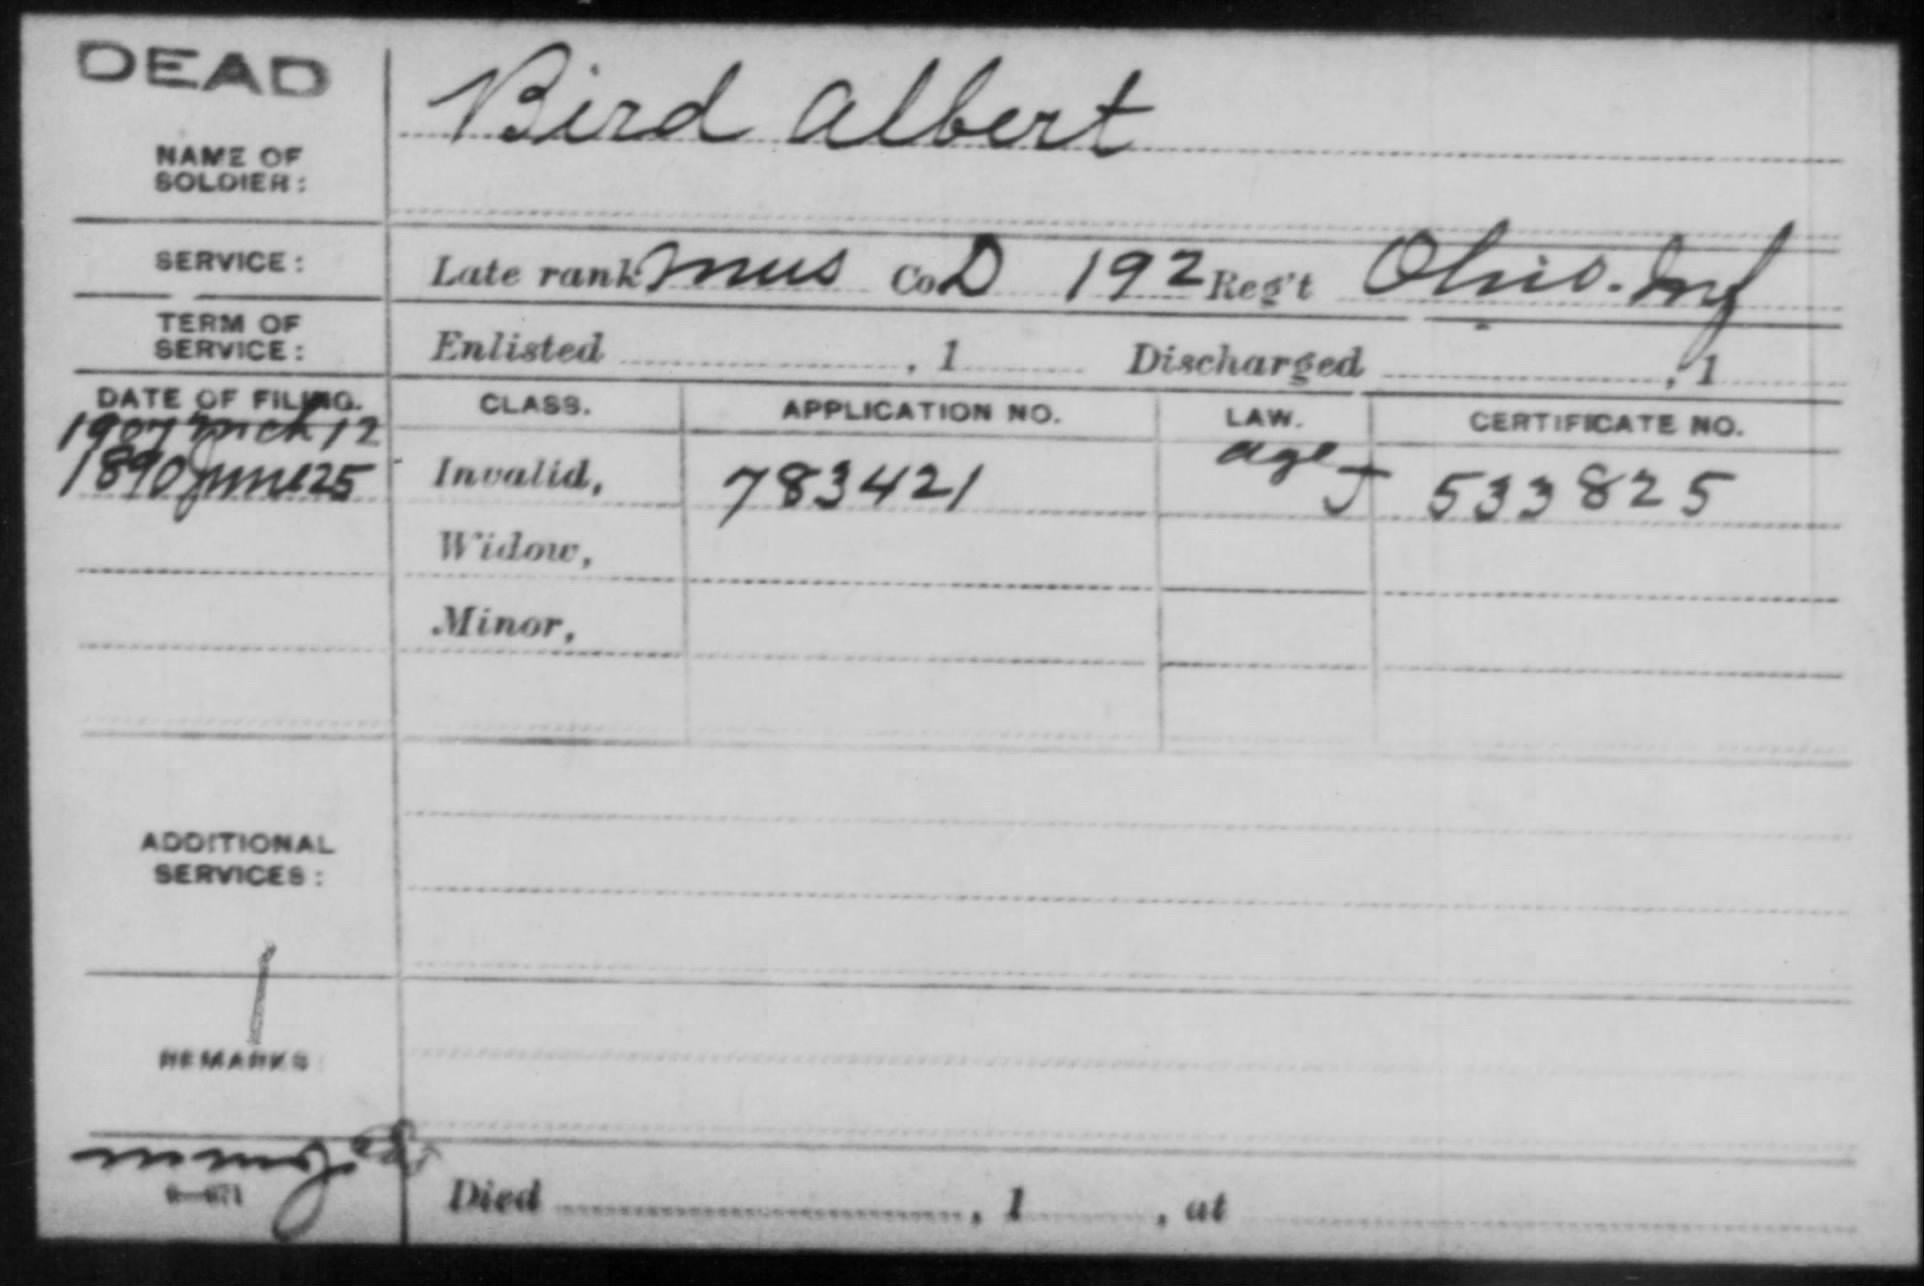 DEAD
Bird Albert
NAME OF
SOLDIER:
SERVICE: Late rank Mus Co D 192 Reg't Ohio. Inf
TERM OF
SERVICE: Enlisted , 1 Discharged , 1
DATE OF FILING. CLASS. APPLICATION NO. LAW. CERTIFICATE NO.
1907 Mch 12 age
1890 June 25 Invalid, 783421 J 533825
Widow,
Minor,
ADDITIONAL
SERVICES:
REMARKS
Died , 1 , at